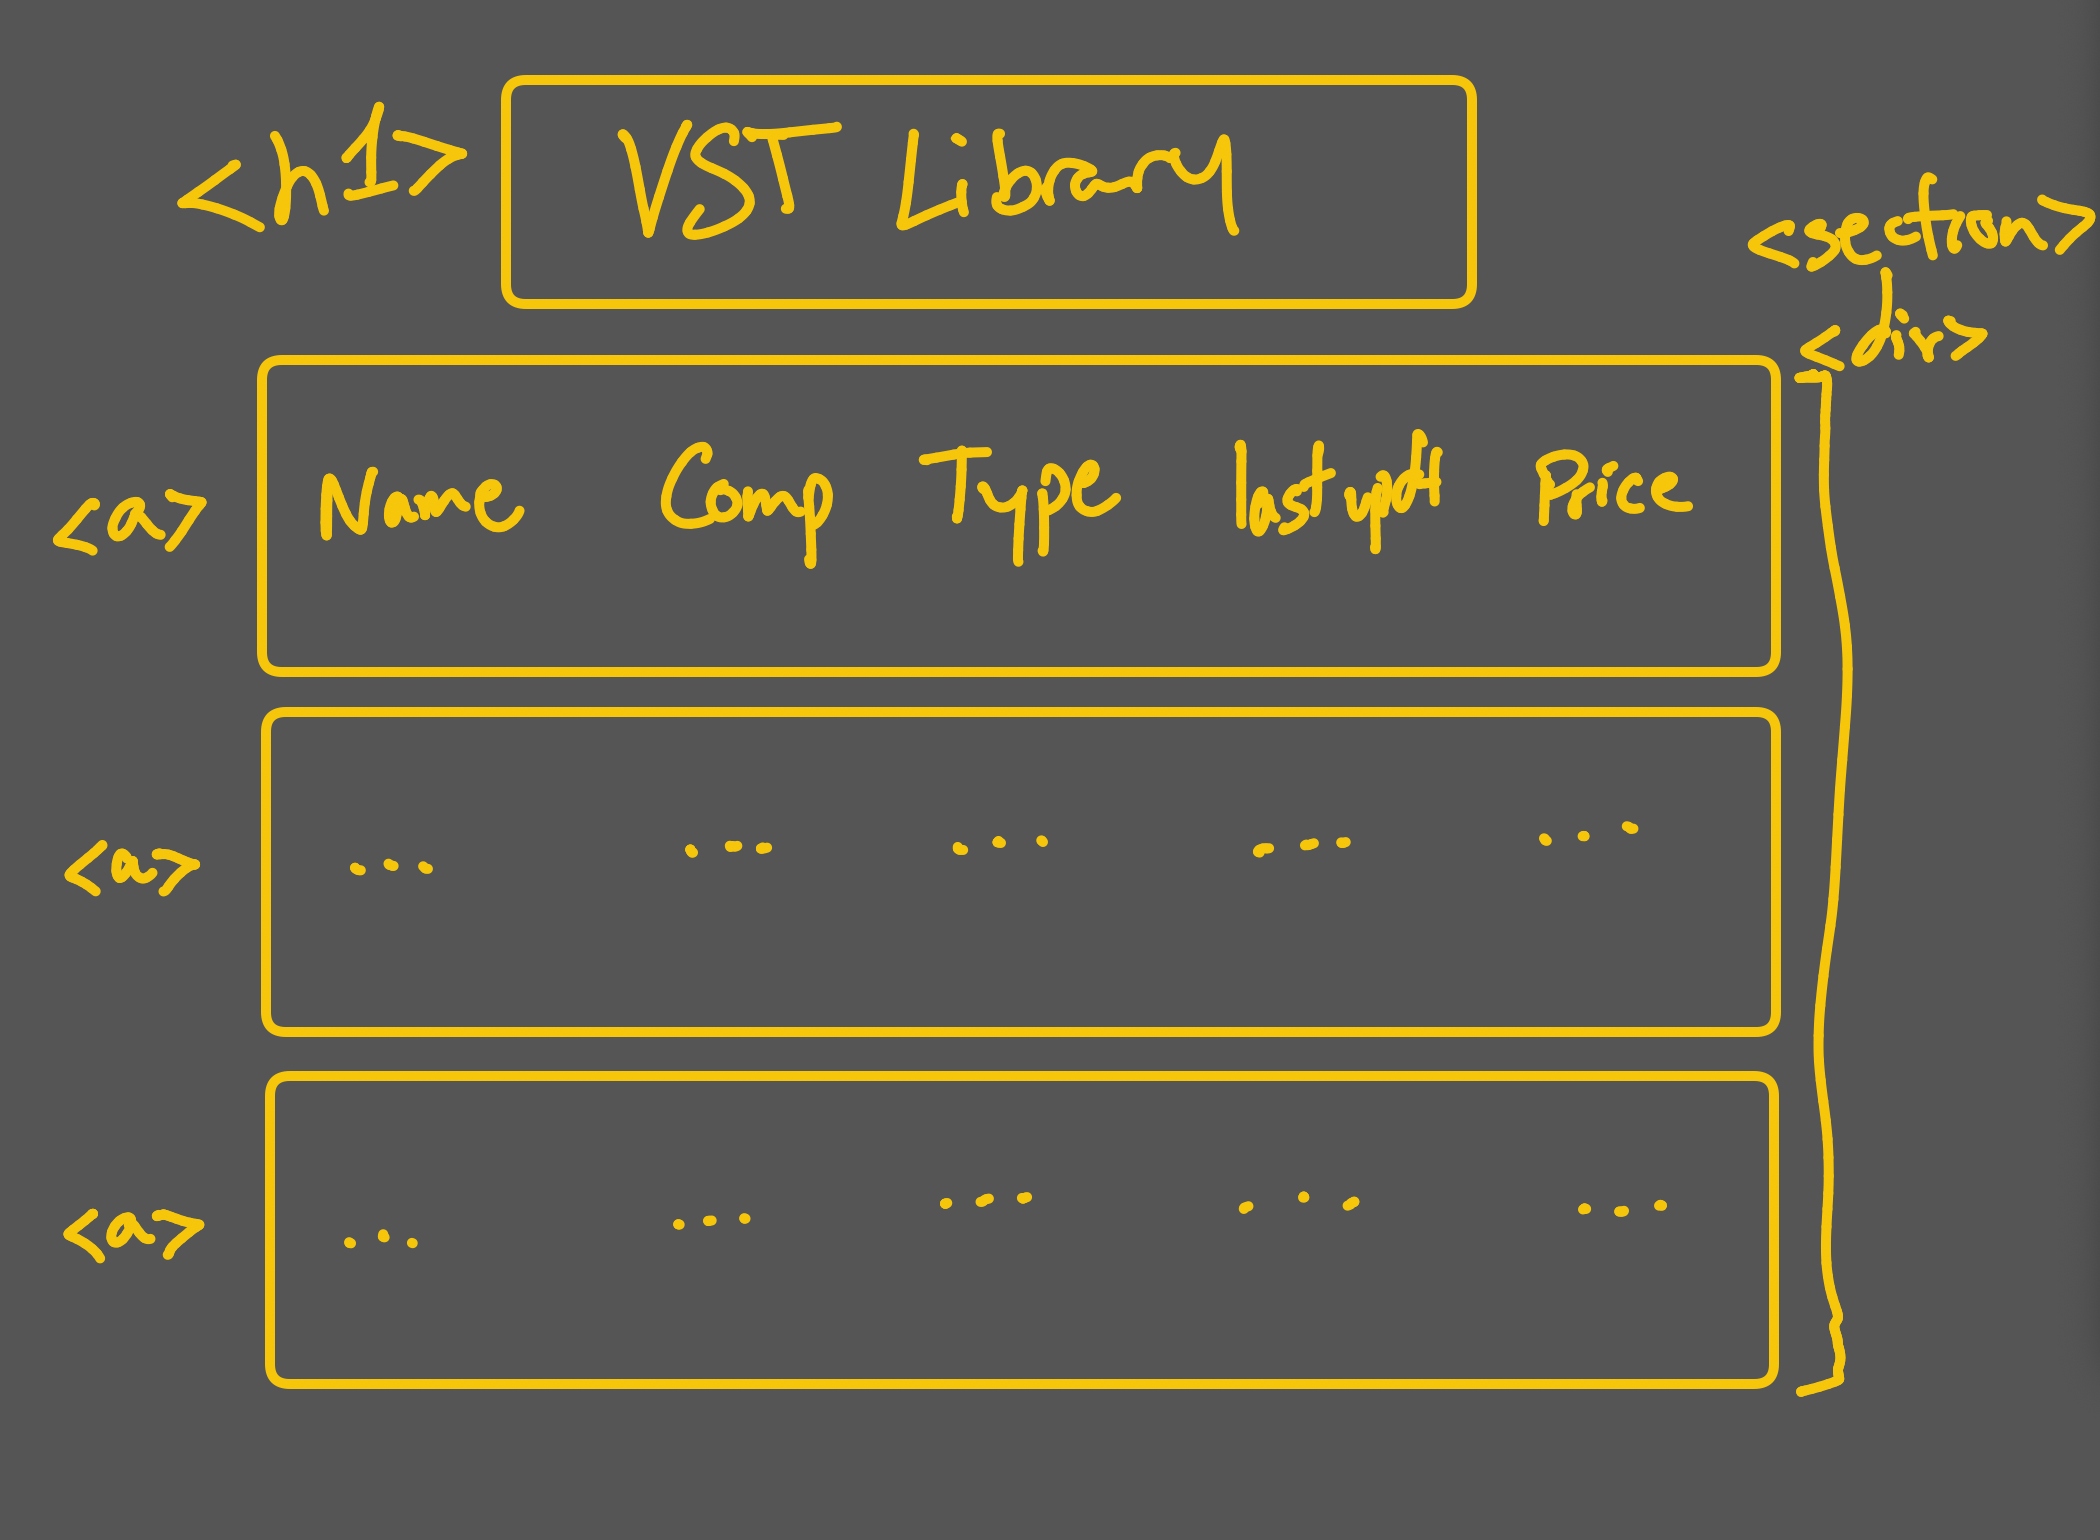 <h1> VST Library
<section>
<div>
<a> Name Comp Type Price
<a> ... ... ... ... ...
<a> ... ... ... ... ...